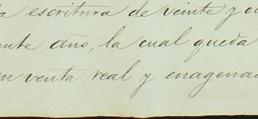 a escritura de veinte y oc
ente año, la cual queda
en venta real y enagenac